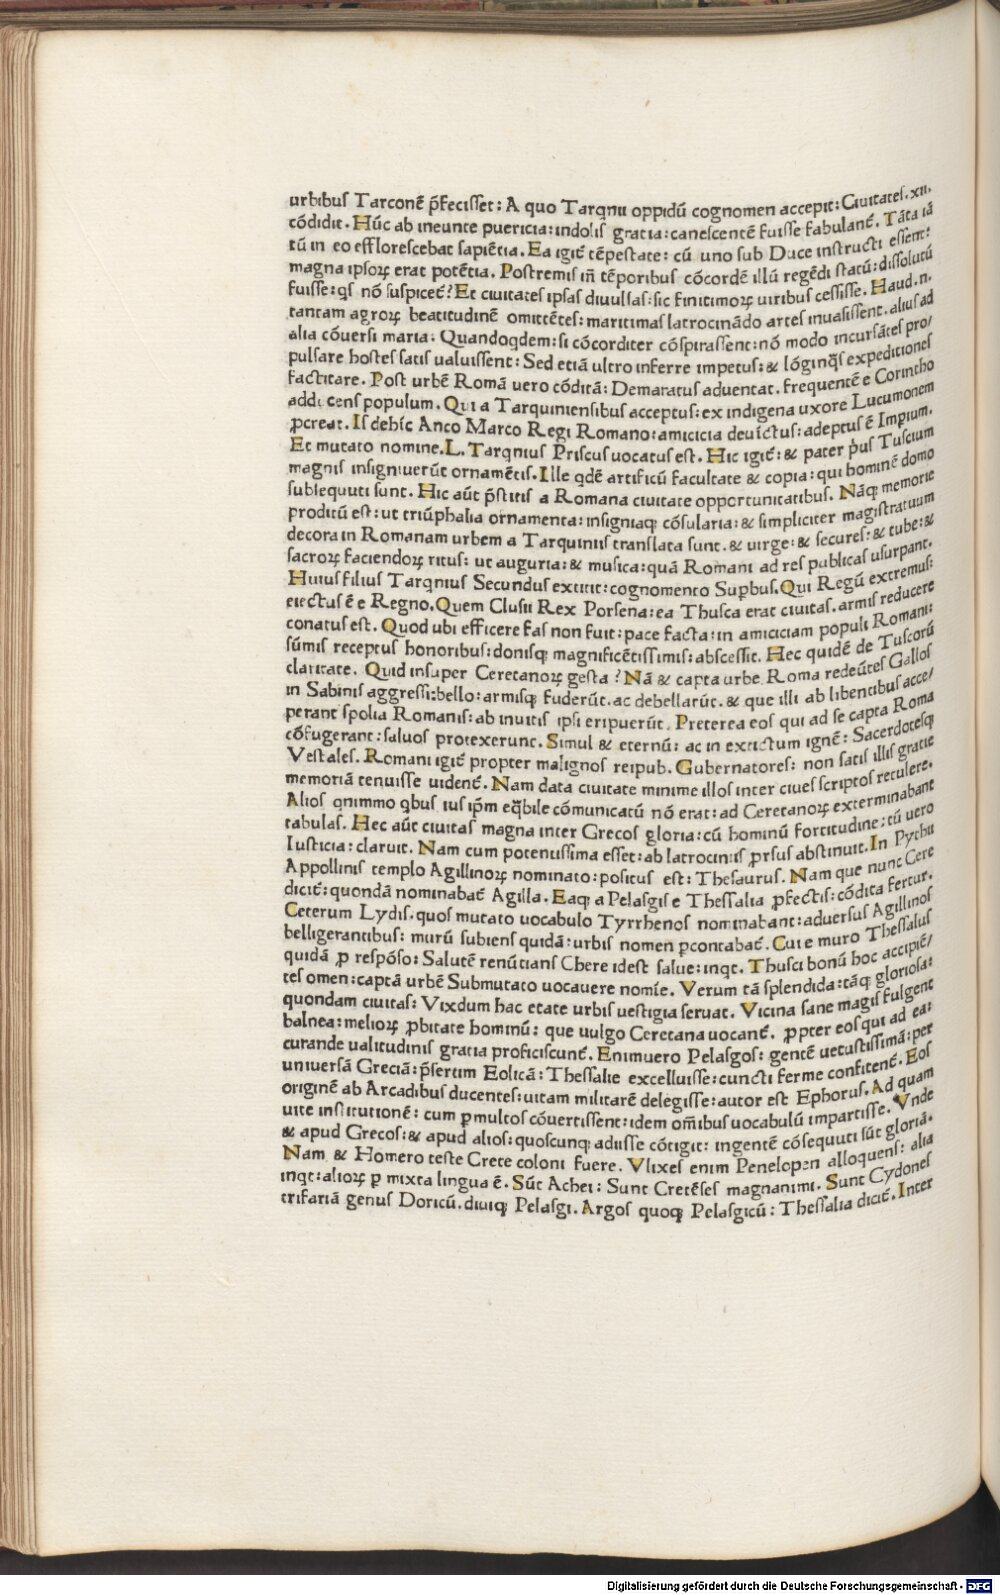 urbibuſ Tarconē p̄feciſſet: A quo Tarqnii oppidū cognomen accepit: Ciuitateſ. xii.
cōdidit. Hūc ab ineunte puericia: indoliſ gratia: caneſcentē fuiſſe fabulant̄. Tāta iā
tū in eo effloreſcebat ſapiētia. Ea igit̄ tēpeſtate: cū uno ſub Duce inſtructi eſſent:
magna ipſoꝝ erat potētia. Poſtremiſ in̄ tēporibuſ cōcordē illū regēdi ſtatū: diſſolutū
fuiſſe: qſ nō ſuſpicet̄? Et ciuitateſ ipſaſ diuulſaſ: ſic finitimoꝝ uiribuſ ceſſiſſe. Haud. n.
tantam agroꝝ beatitudinē omittēteſ: maritimaſ latrocinādo arteſ inuaſiſſent. aliuſ ad
alia cōuerſi maria: Quandoqdem: ſi cōcorditer cōſpiraſſent: nō modo incurſāteſ pro/
pulſare hoſteſ ſatiſ ualuiſſent: Sed etiā ultro inferre impetuſ: & lōginq̄ſ expeditioneſ
factitare. Poſt urbē Romā uero cōditā: Demaratuſ aduentat. frequentē e Corintho
adducenſ populum. Qui a Tarquinienſibuſ acceptuſ: ex indigena uxore Lucumonem
ꝓcreat. Iſ dehīc Anco Marco Regi Romano: amicicia deuīctuſ: adeptuſ ē Impium.
Et mutato nomine. L. Tarqniuſ Priſcuſ uocatuſ eſt. Hic igit̄: & pater p̄huſ Tuſcium
magniſ inſigniuerūt ornamētiſ. Ille qdē artificū facultate & copia: qui hominē domo
ſubſequuti ſunt. Hic aūt p̄ſtitiſ a Romana ciuitate opportunitatibuſ. Nāq; memorie
proditū eſt: ut triūphalia ornamenta: inſigniaq; cōſularia: & ſimpliciter magiſtratuum
decora in Romanam urbem a Tarquiniiſ tranſlata ſunt. & uirge: & ſecureſ: & tube: &
ſacroꝝ faciendoꝝ rituſ: ut auguria: & muſica: quā Romani ad reſ publicaſ uſurpant.
Huiuſ filiuſ Tarqniuſ Secunduſ extitit: cognomento Supbuſ. Qui Regū extremuſ:
eiectuſ ē e Regno. Quem Cluſii Rex Porſena: ea Thuſca erat ciuitaſ. armiſ reducere
conatuſ eſt. Quod ubi efficere faſ non fuit: pace facta: in amiciciam populi Romani:
ſūmiſ receptuſ honoribuſ: doniſq; magnificētiſſimiſ: abſceſſit. Hec quidē de Tuſcorū
claritate. Quid inſuper Ceretanoꝝ geſta? Nā & capta urbe Roma redeūteſ Galloſ
in Sabiniſ aggreſſi: bello: armiſq; fuderūt. ac debellarūt. & que illi ab libentibuſ acce/
perant ſpolia Romaniſ: ab inuitiſ ipſi eripuerūt. Preterea eoſ qui ad ſe capta Roma
cōfugerant: ſaluoſ protexerunt. Simul & eternū: ac in extictum ignē: Sacerdoteſq;
Veſtaleſ. Romani igit̄ propter malignoſ reipub. Gubernatoreſ: non ſatiſ illiſ gratie
memoriā tenuiſſe uident̄. Nam data ciuitate minime illoſ inter ciueſ ſcriptoſ retulere.
Alioſ qnimmo qbuſ iuſ ip̄m eq̄bile cōmunicatū nō erat: ad Ceretanoꝝ exterminabant
tabulaſ. Hec aūt ciuitaſ magna inter Grecoſ gloria: cū hominū fortitudine: tū uero
Iuſticia: claruit. Nam cum potentiſſima eſſet: ab latrociniiſ ꝓrſuſ abſtinuit. In Pythii
Appolliniſ templo Agillinoꝝ nominato: poſituſ eſt: Theſauruſ. Nam que nunc Cere
dicit̄: quondā nominabat̄ Agilla. Eaq; a Pelaſgiſ e Theſſalia ꝓfectiſ: cōdita fertur.
Ceterum Lydiſ. quoſ mutato uocabulo Tyrrhenoſ nominabant: aduerſuſ Agillinoſ
belligerantibuſ: murū ſubienſ quidā: urbiſ nomen ꝑcontabat̄. Cui e muro Theſſaluſ
quidā ꝓ reſpōſo: Salutē renūtianſ Chere ideſt ſalue: inqt. Thuſci bonū hoc accipiē/
teſ omen: captā urbē Submutato uocauere nomīe. Verum tā ſplendida: tāq; glorioſa:
quondam ciuitaſ: Vixdum hac etate urbiſ ueſtigia ſeruat. Vicina ſane magiſ fulgent
balnea: melioꝝ ꝓbitate hominū: que uulgo Ceretana uocant̄. ꝓpter eoſ qui ad ea:
curande ualitudiniſ gratia proficiſcunt̄. Enimuero Pelaſgoſ: gentē uetuſtiſſimā: per
uniuerſā Greciā: p̄ſertim Eolicā: Theſſalie excelluiſſe: cuncti ferme confitent̄. Eoſ
originē ab Arcadibuſ ducenteſ: uitam militarē delegiſſe: autor eſt Ephoruſ. Ad quam
uite inſtitutionē: cum ꝑmultoſ cōuertiſſent: idem om̄ibuſ uocabulū impartiſſe. Vnde
& apud Grecoſ: & apud alioſ: quoſcunq; adiiſſe cōtigit: ingentē cōſequuti ſūt gloriā.
Nam & Homero teſte Crete coloni fuere. Vlixeſ enim Penelopen alloquenſ: alia
inqt: alioꝝ ꝑ mixta lingua ē. Sūt Achei: Sunt Cretēſeſ magnanimi. Sunt Cydoneſ
trifariā genuſ Doricū. diuiq; Pelaſgi. Argoſ quoq; Pelaſgicū: Theſſalia dicit̄. Inter
Digitalisierung gefördert durch die Deutsche Forschungsgemeinschaft - DFG